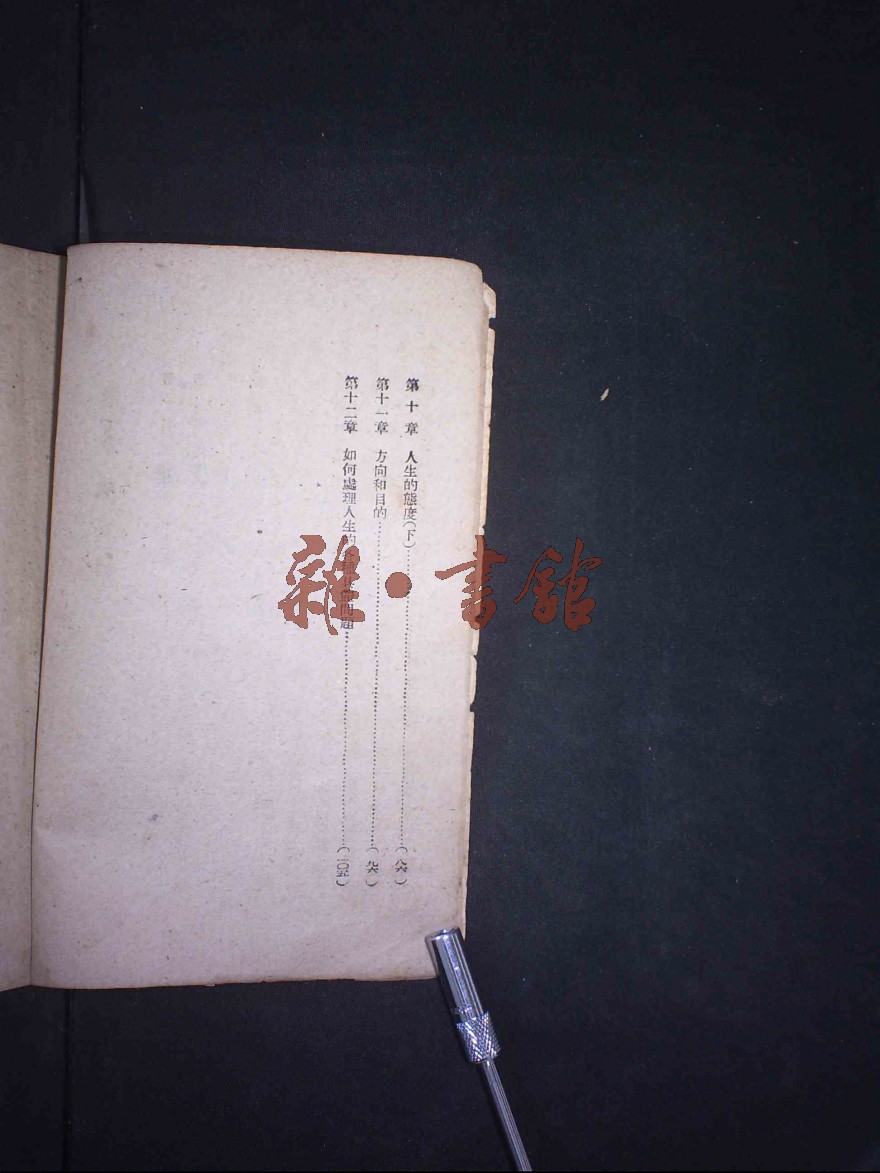 第十章 人生的態度(下)……(八六)
第十一章 方向和目的……(九六)
第十二章 如何處理人生的 問題……(一〇五)
雜·書館